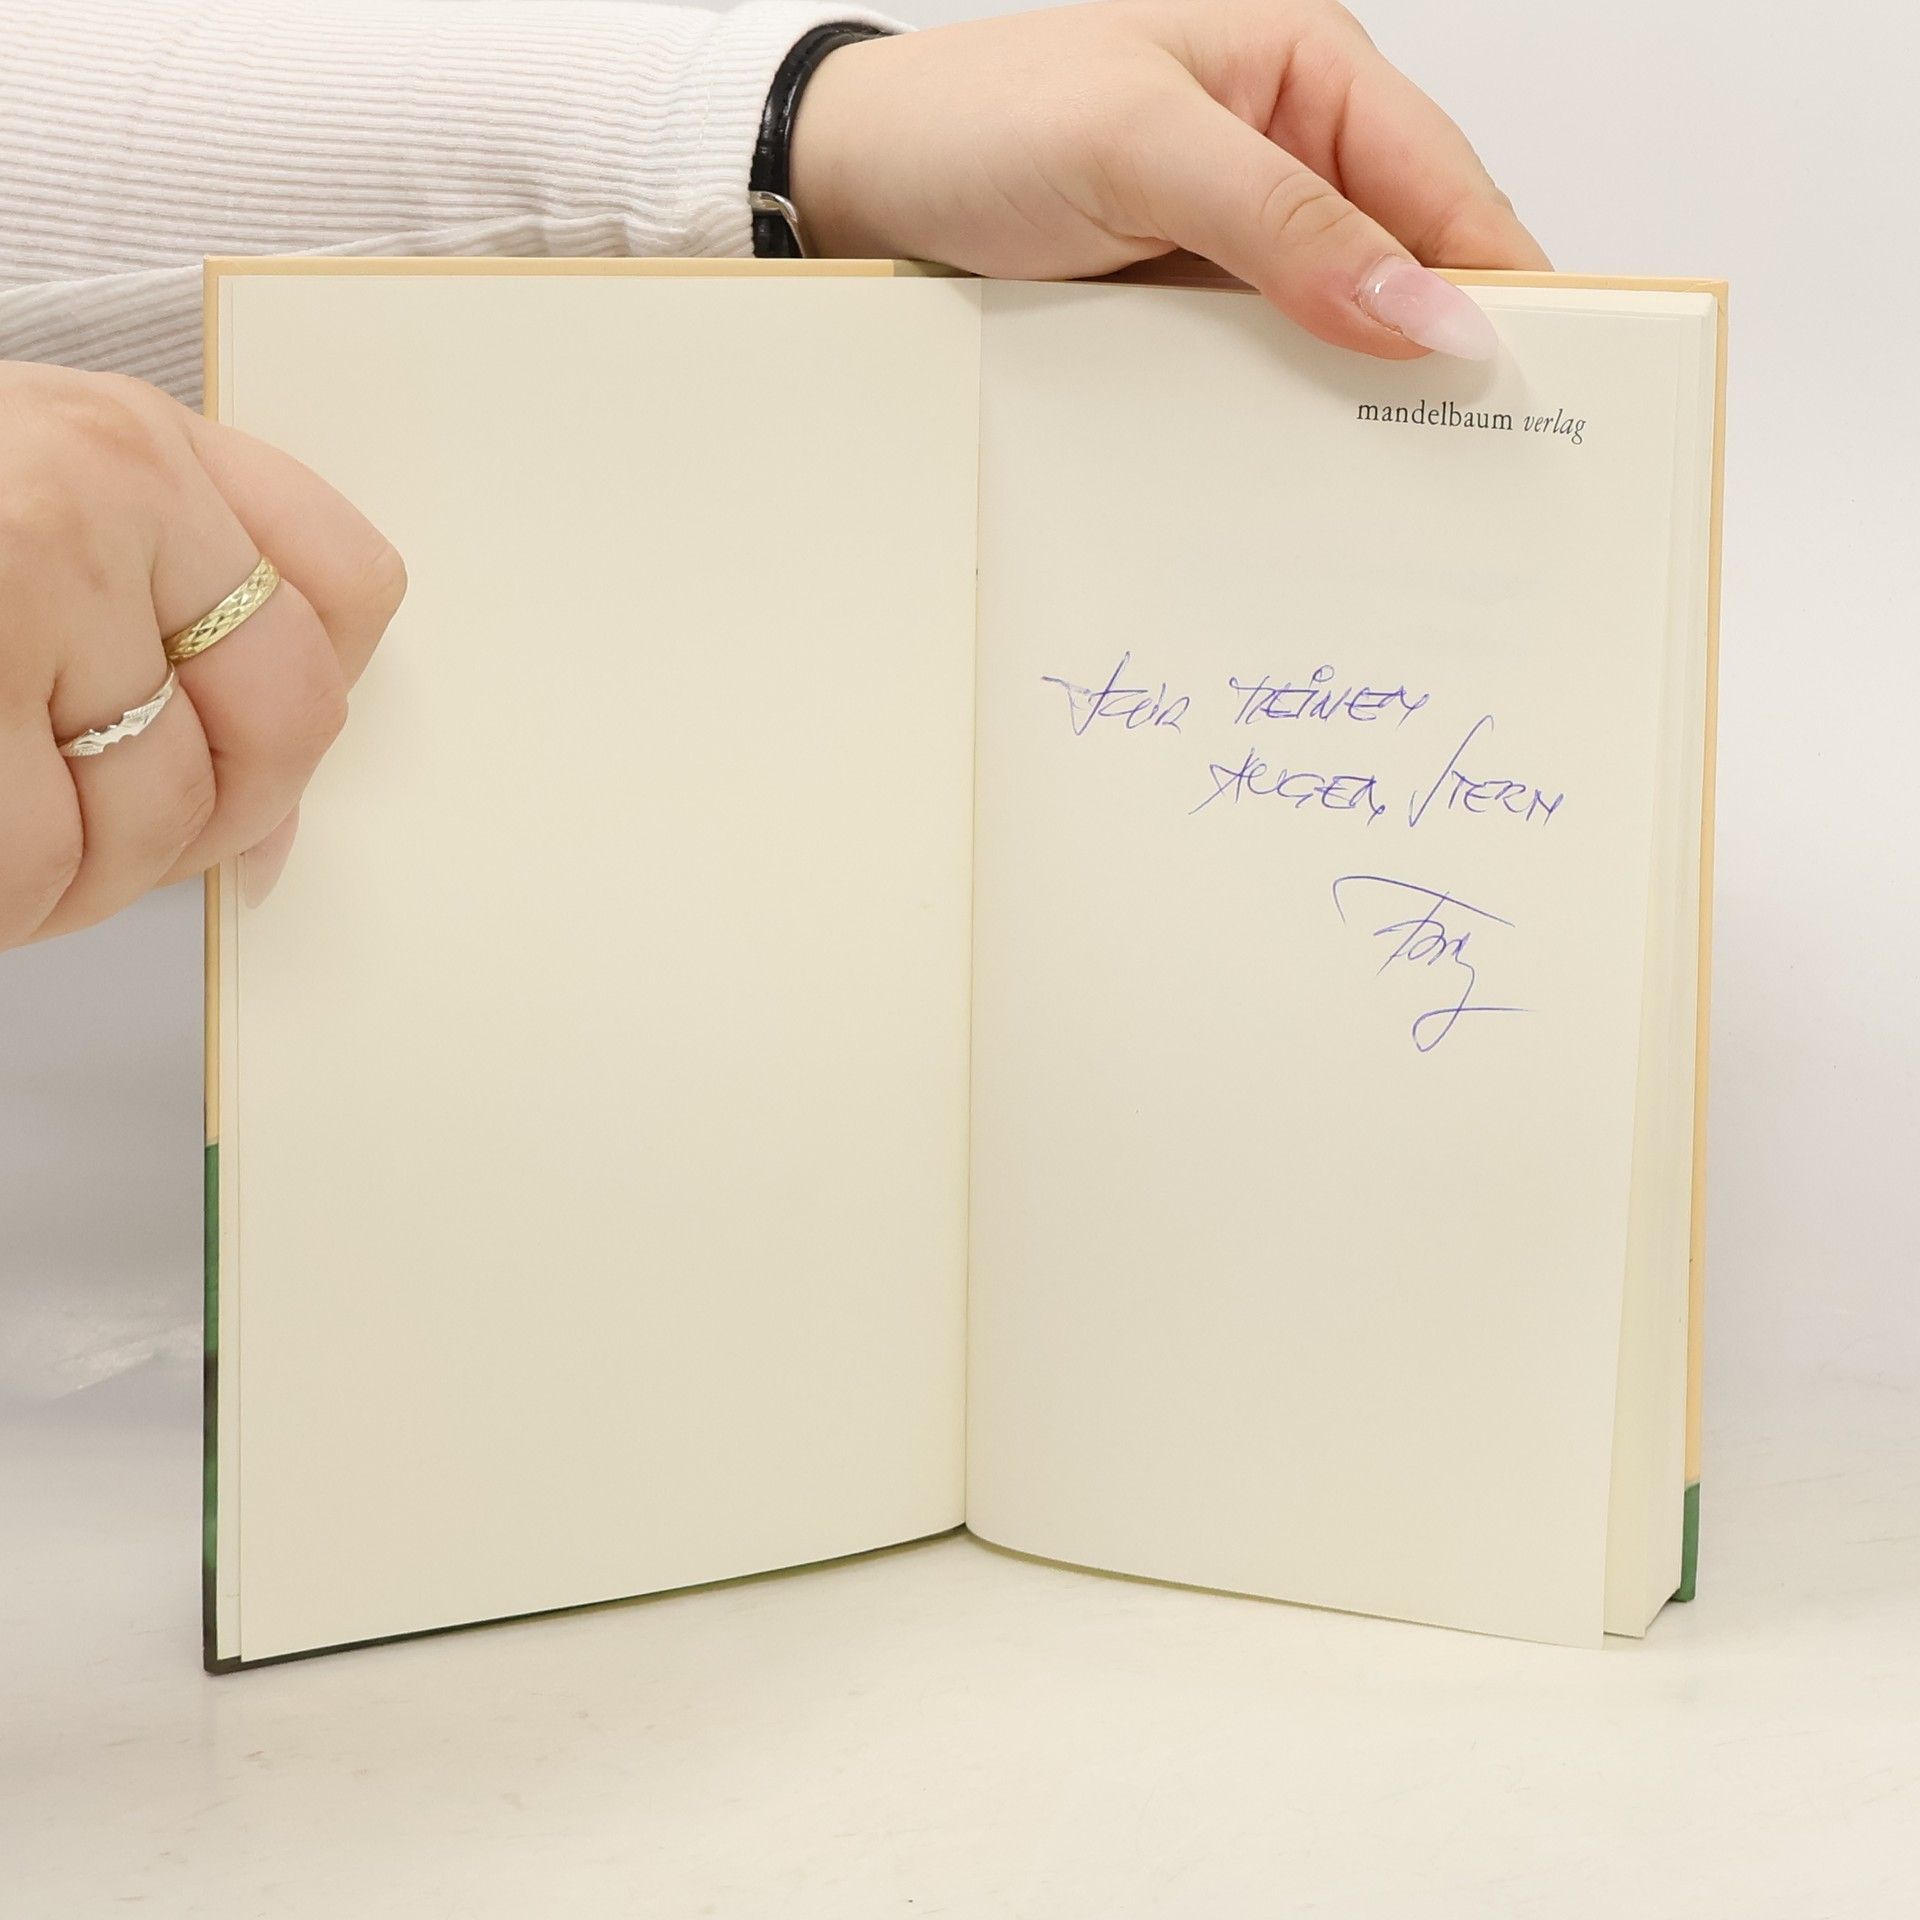 mandelbaum verlag
FÜR MEINEN
AUGEN STERN